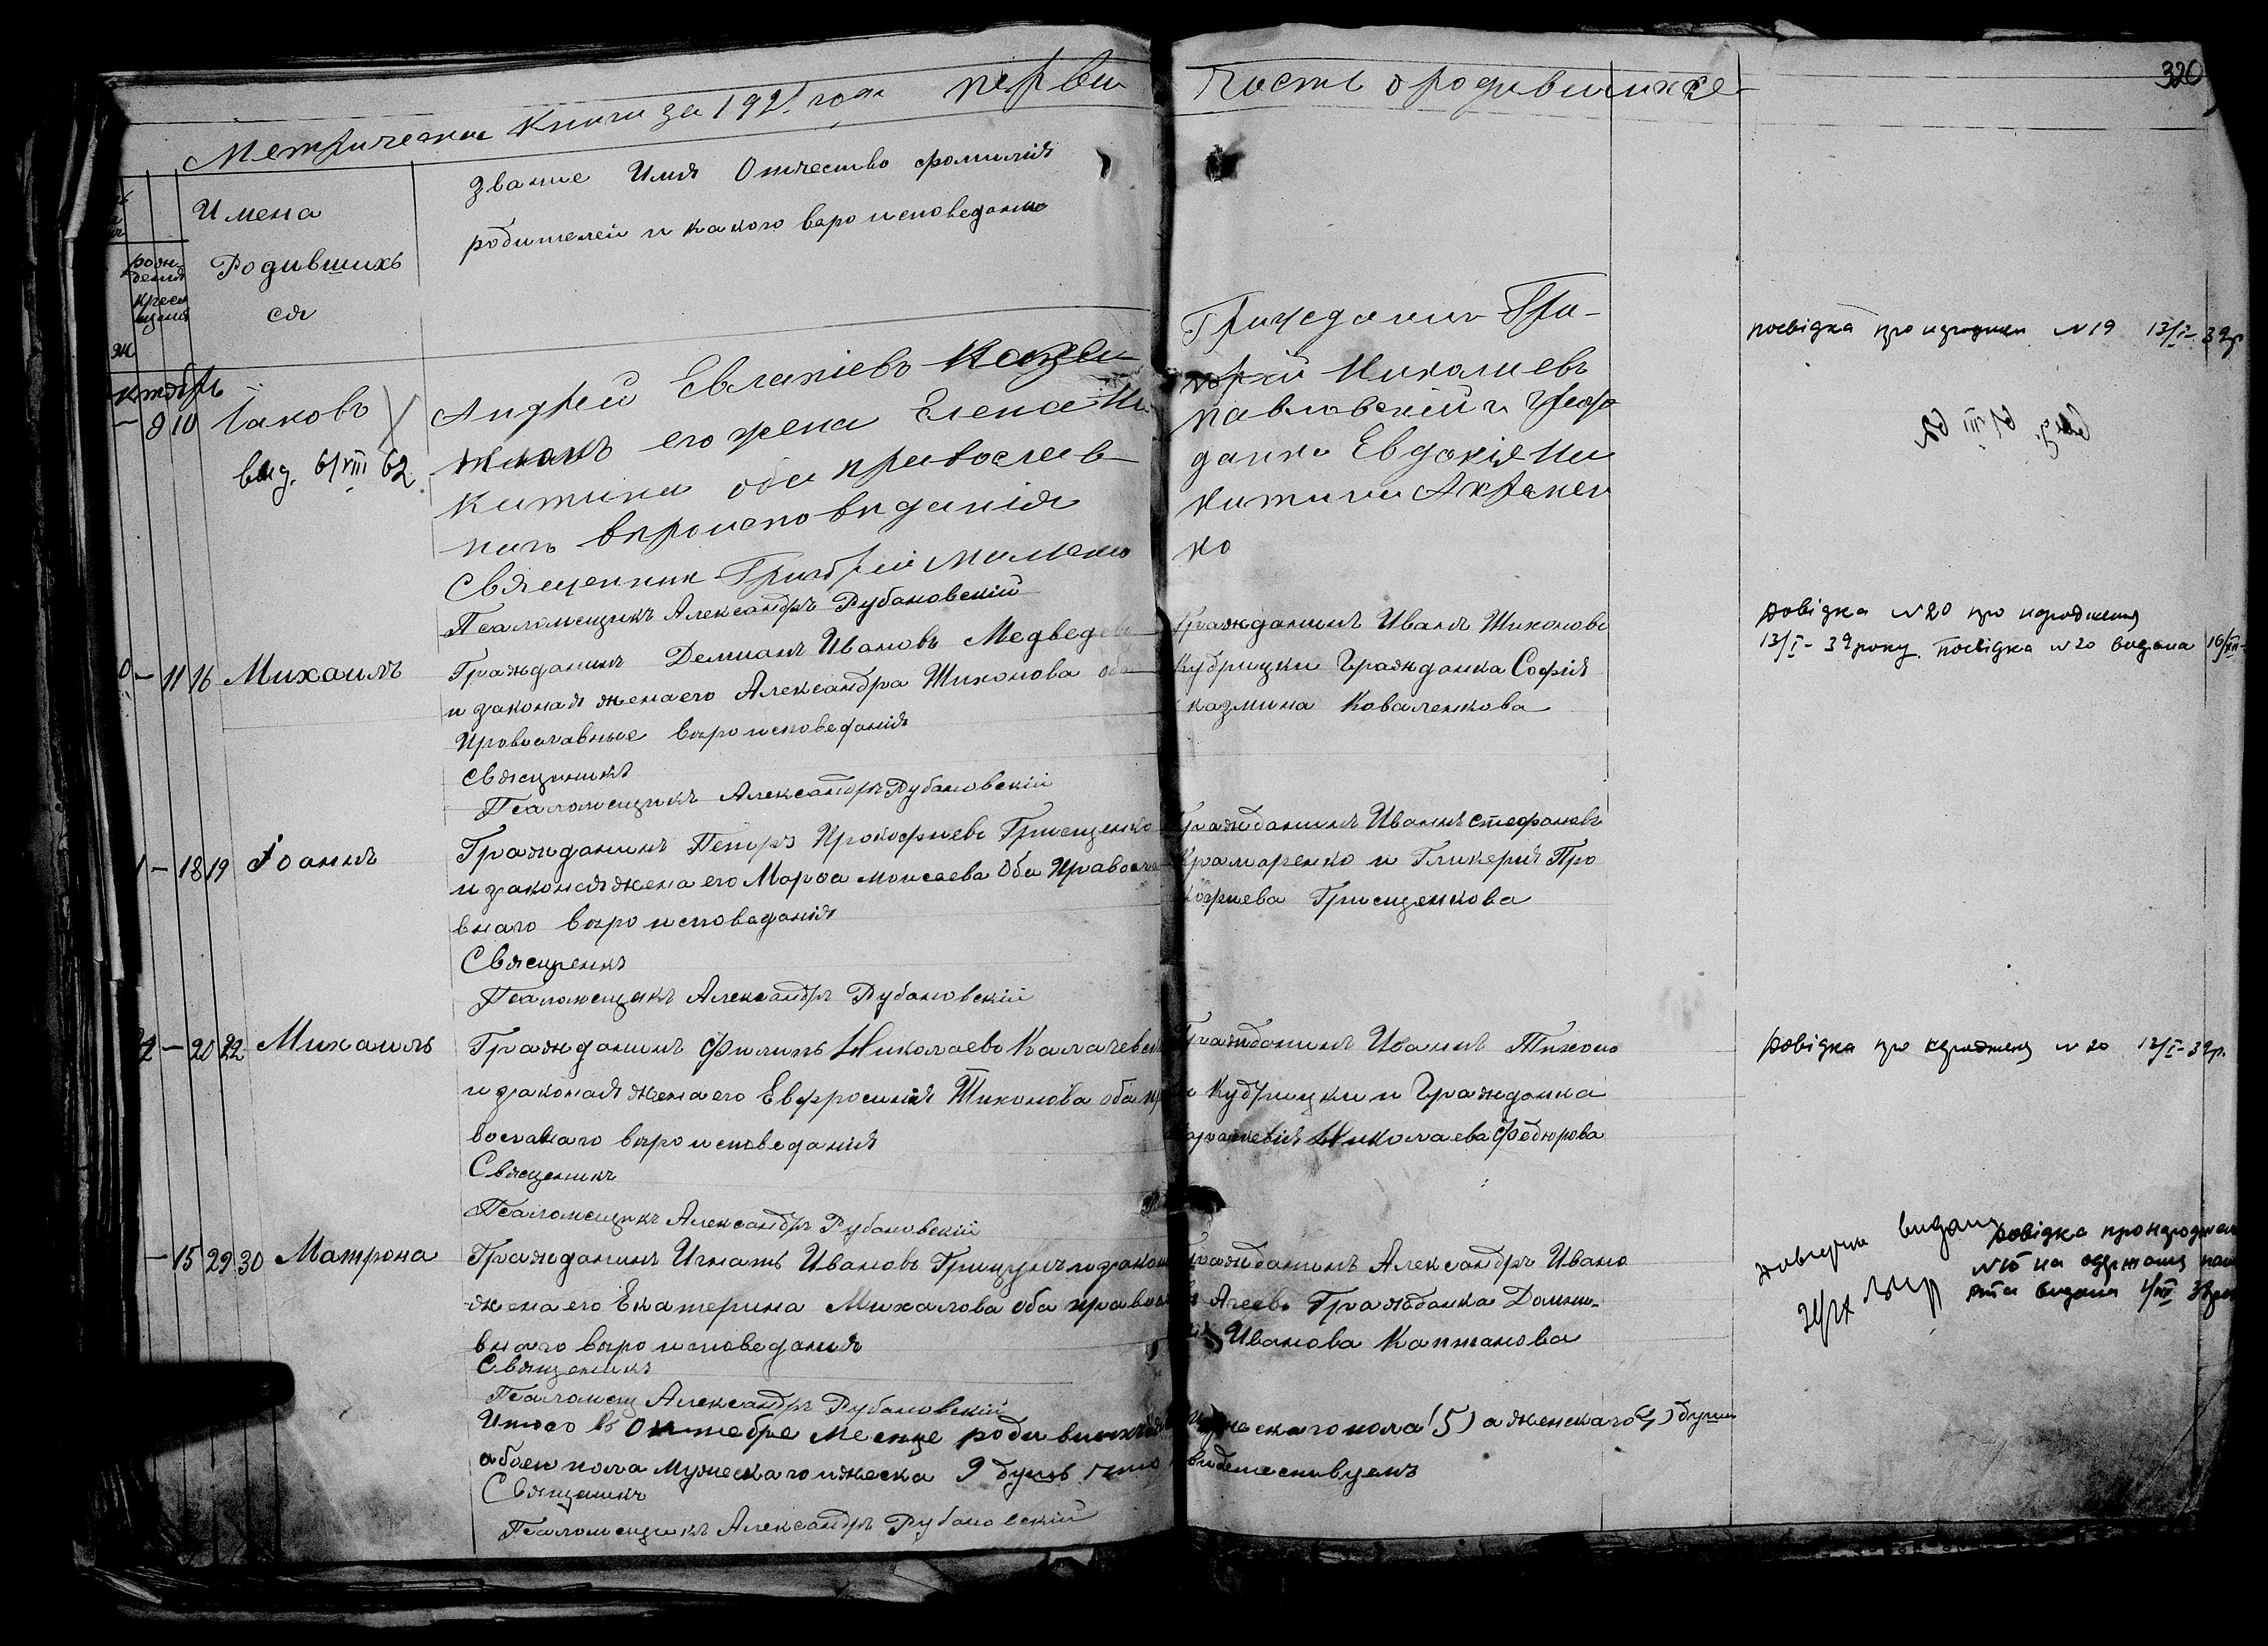 320
Метрически Книги за 1921 года перви
часть о родившихсе
Имена
Родившихъ
ся
рожд
дения
крес
щения
Звание Имя Отчество фомилия
родителей и какого варо исповедание
ктобрь
— 8 10 Іаковъ
вид. 6/VIII 62.
Андрей Евлахіевъ
его жена Елена Ни
китина оба православ
наго вероисповеданія
Священник Григорій
Псаломщикъ Александръ Рубановскій
Гражданин Гри-
горій Николаевъ
Павловскій и Граж
данка Евдокія Ни
китина
ко
посвідка про народження №19 13/I-39р
вид. 6/VIII 62
0 — 11 16 Михаилъ
Гражданинъ Демианъ Ивановъ Медведев
и законая жена его Александра Тихонова оба
Провославные вероисповеданія
Священикъ
Псаломщикъ Александръ Рубановскій
Гражданинъ Иванъ Тихоновъ
Кудрицки Гражданка Софія
казмина Коваленкова
Довідка №20 про народження
13/I-39 року. посвідка №20 видана 16/XII-
1 — 18 19 Іоаннъ
Гражданинъ Петръ Прокофиевъ Грищенко
и законая жена его Марфа Моисеева Оба Правосла
внаго вероисповеданія
Священкъ
Псаломщикъ Александръ Рубановскій
Гражданинъ Иванъ Стефановъ
Крамаренко и Гликерия Про
кофиева Грищенкова
12 — 20 22 Михаилъ
Гражданинъ Филипъ Николаевъ Калачевск
и законая жена его Евфросинія Тихонова оба пр
вославнаго вероисповеданія
Священикъ
Псаломщикъ Александръ Рубановскій
Гражданинъ Иванъ Тихоно
Кудрицки и Гражданка
араскевія Николаева Федюрова
Довідка про народження №20 13/I-39р.
— 15 29 30 Матрона
Гражданинъ Игнатъ Ивановъ Грицунъ и закон
жена его Екатерина Михалова оба правосла
внаго вероисповеданія
Священикъ
Псаломщ Александръ Рубановскій
Гражданинъ Александръ Ивано
Агеевъ Гражданка Домни-
Иванова Каптанова
видана
Довідка про народжен
№10 на одержання пас
рта видана 1/XII 38р
Итого въ Октебре Месяце родившихся мужескаго пола (5) а женскаго (4) души
обоеи пола Мужескаго и женска 9 душъ что свидетествуемъ
Священикъ
Псаломщикъ Александръ Рубановскій